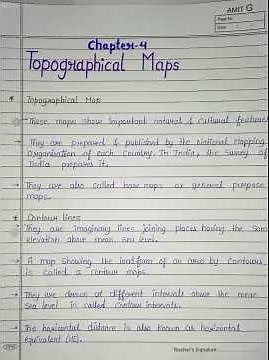 AMIT G
Page No.
Date
Chapter-4
Topographical Maps
* Topographical Map
→ These maps show important natural & cultural features
→ They are prepared & published by the National Mapping
Organisation of each Country. In India, the Survey of
India prepares it.
→ They are also called base maps or general purpose
maps.
* Contour lines
→ They are imaginary lines joining places having the Same
elevation above mean sea level.
→ A map showing the landform of an area by Contours
is called a contour map.
→ They are drawn at different intervals above the mean
Sea level is called contour intervals.
→ The horizontal distance is also known as horizontal
equivalent (HE).
Teacher's Signature